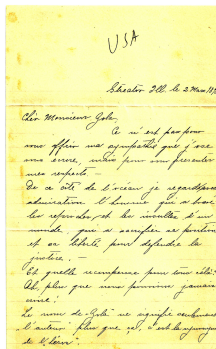 USA
Streator Ill. le 2 Mars 189
Cher Monsieur Zola,
Ce n'est pas pour
vous offrir ma sympathie que j'ose
vous écrire, mais pour vous présenter
mes respects.
De ce côté de l'océan je regarde avec
admiration l'homme qui a bravé
les reproches et les insultes d'un
monde, qui a sacrifié sa position
et sa liberté pour défendre la
justice.
Et quelle récompense pour tout cela?
Ah, plus que nous pourrions jamais
Le nom de Zola ne signifie seulement
l'auteur plus que ça, c'est le synonyme
de "héros"